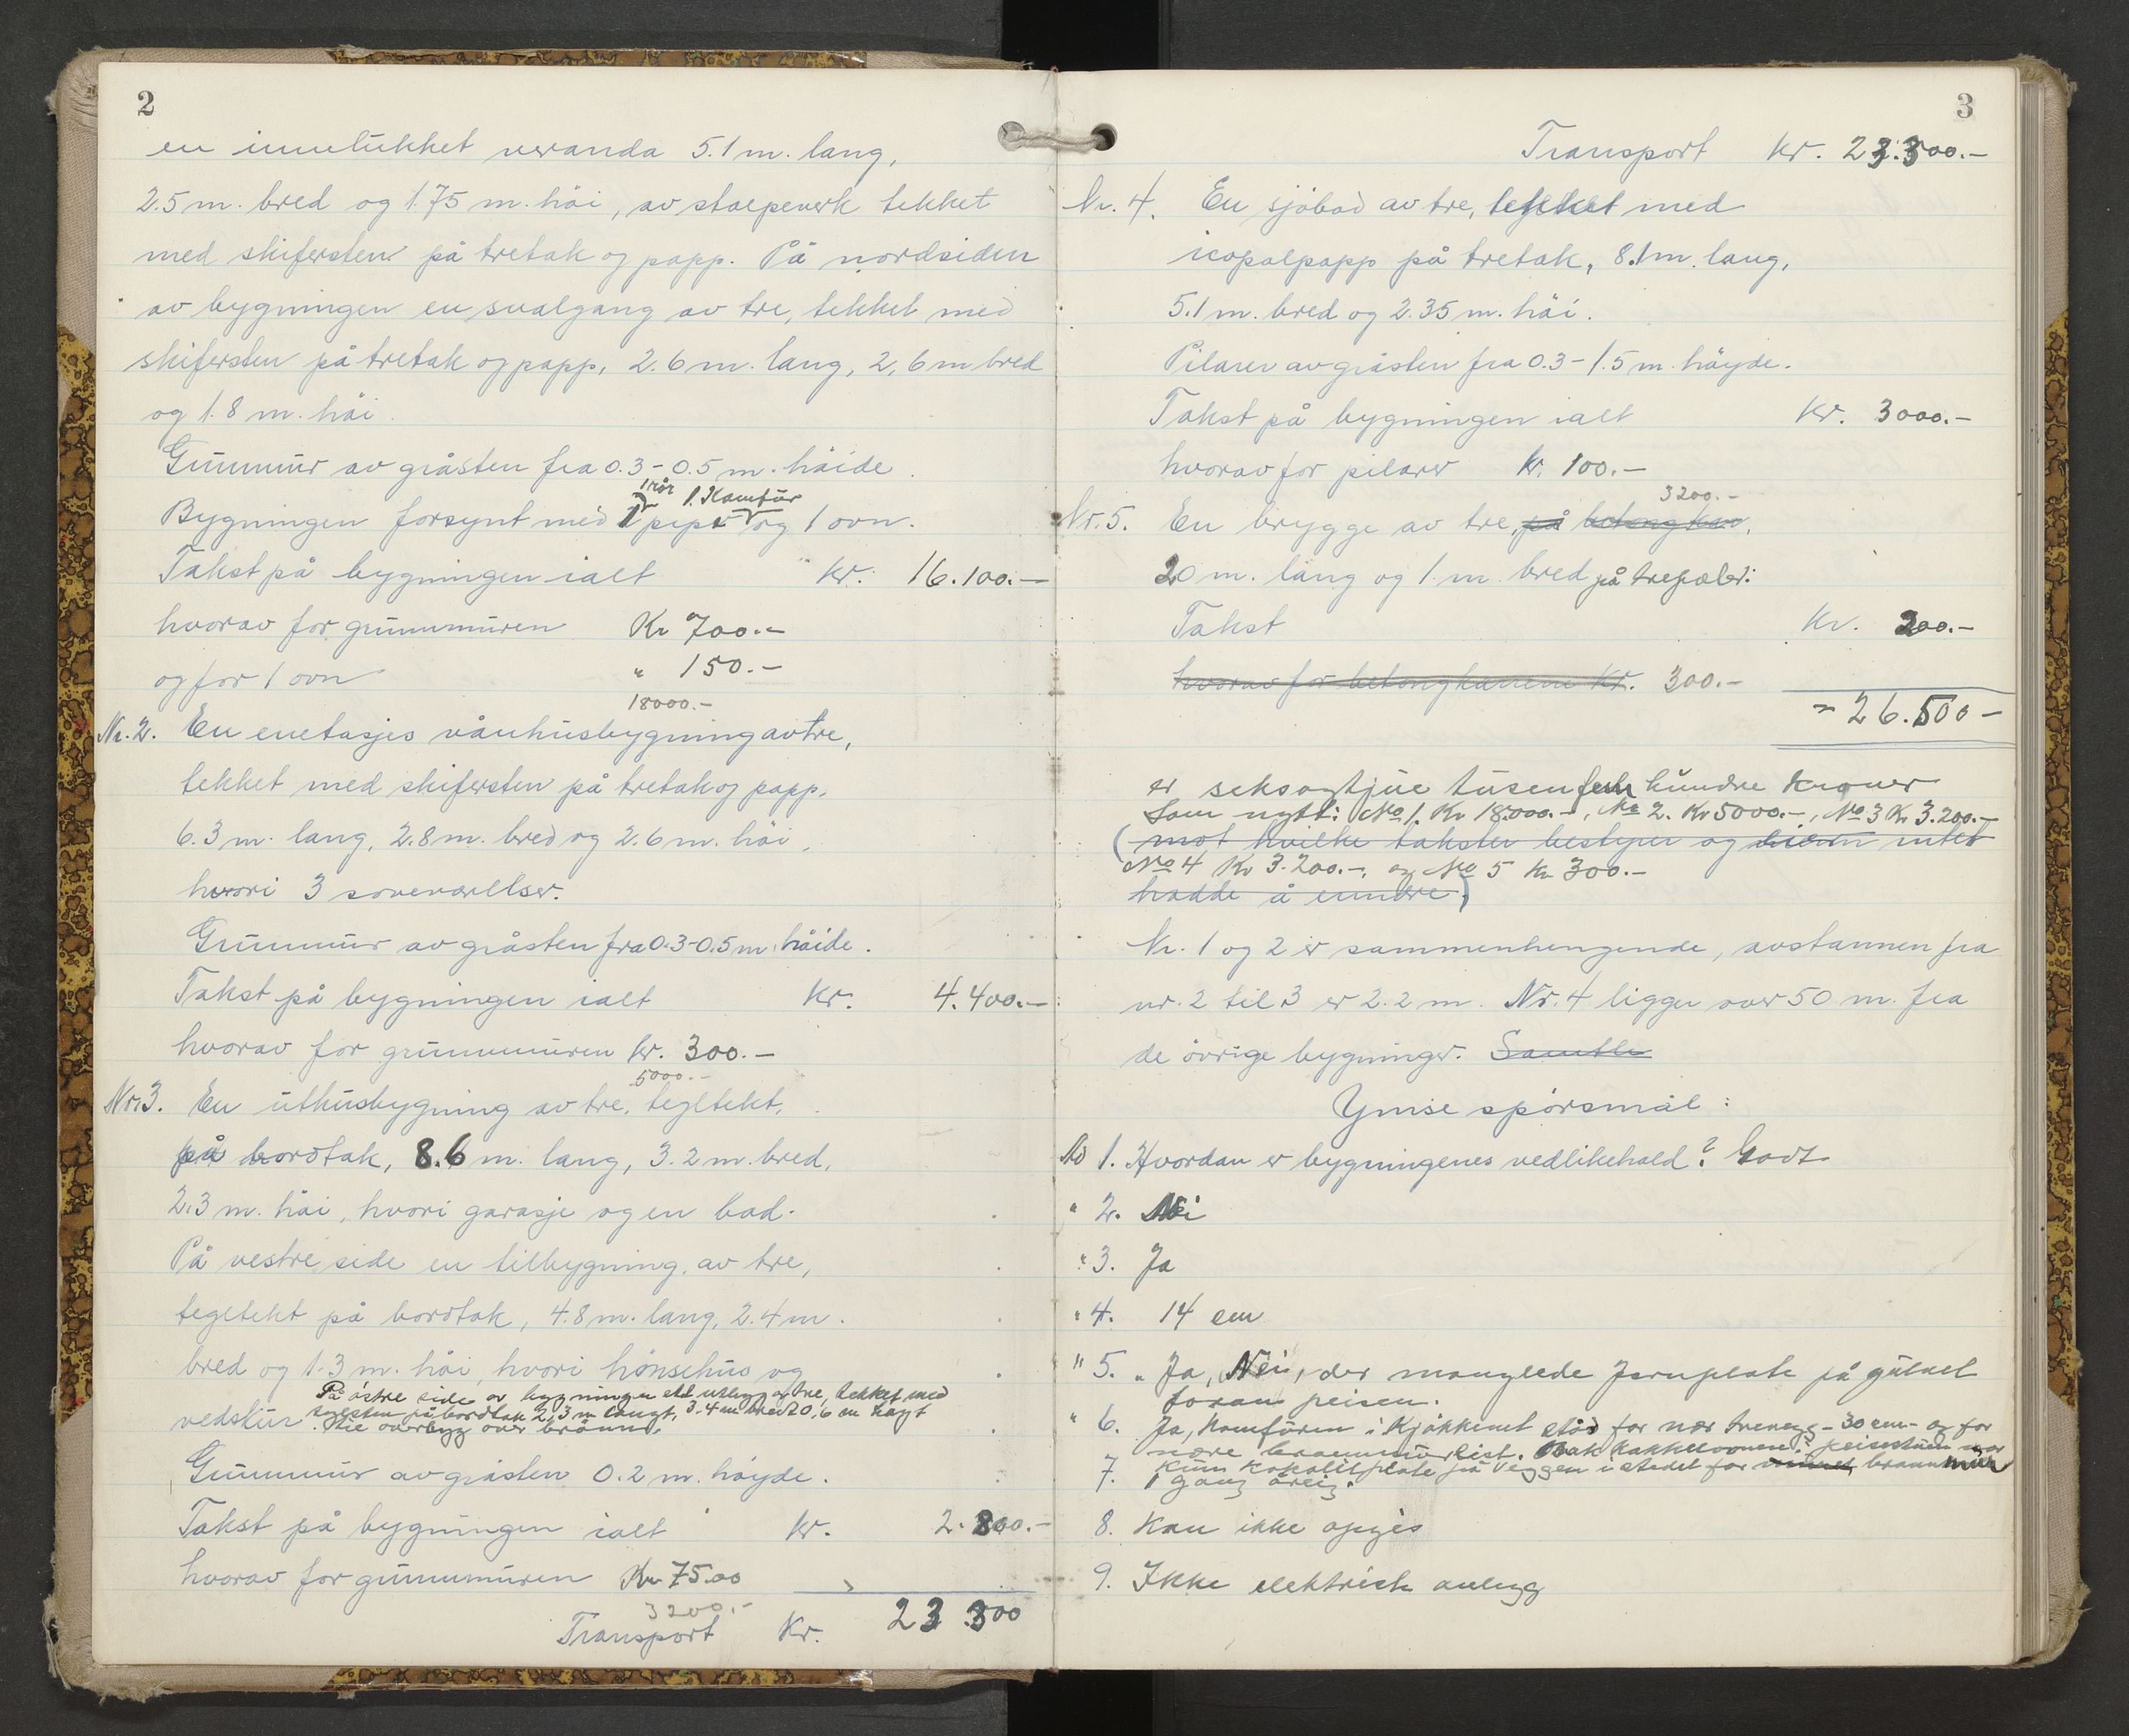 2
en innelukket veranda 5.1 m. lang,
2.5 m. bred og 1.75 m. höi, av stolpeverk tekket
med skifersten på tretak og papp. På nordsiden
av bygningen en svalgang av tre, tekket med
skifersten på tretak og papp, 2.6 m. lang, 2,6 m bred
og 1.8 m. höi.
Grunmur av gråsten fra 0.3 - 0.5 m. höide.
1 rör 1. Komfür
Bygningen forsynt med 1 pipe og 1 ovn.
Takst på bygningen ialt Kr. 16.100.-
hvorav for grunnmuren Kr 700.-
og for 1 ovn " 150.-
18000.-
Nr. 2. En enetasjes vånhusbygning av tre,
tekket med skifersten på tretak og papp,
6.3 m. lang, 2.8 m. bred og 2.6 m. höi,
hvori 3 soveværelser.
Grunmur av gråsten fra 0.3-0.5 m. höide.
Takst på bygningen ialt Kr. 4.400.-
hvorav for grunnmuren Kr. 300.-
5000.-
Nr. 3. En uthusbygning av tre, tegltekt,
på bordtak, 8.6 m. lang, 3.2 m. bred,
2.3 m. höi, hvori garasje og en bod.
På vestre side en tilbygning av tre,
tegltekt på bordtak, 4.8 m. lang, 2.4 m.
bred og 1.3 m. höi, hvori hönsehus og
På östre side av bygningen ett utbygg av tre, tekket med
vedskur teglsten på bordtak 2,3 m langt, 3.4 m bredt 0,6 m högt
overbygg over brönn.
Grunmur av gråsten 0.2 m. höyde.
Takst på bygningen ialt Kr. 2.800.-
hvorav for grunnmuren Kr 75.00
3200.-
Transport Kr. 23.300
3
Transport Kr. 23.300.-
Nr. 4. En sjöbod av tre, tekket med
icopalpapp på tretak, 8.1 m. lang,
5.1 m. bred og 2.35 m. höi.
Pilarer av gråsten fra 0.3 - 1.5 m. höyde.
Takst på bygningen ialt Kr. 3000.-
hvorav for pilarer Kr. 100.-
3200.-
Nr. 5. En brygge av tre, på betongkar,
20 m. lang og 1 m. bred på trepæler.
Takst Kr. 200.-
hvorav for betongkarene Kr. 300.-
= 26.500 -
er seksogtjue tusen fem hundre kroner
Som nytt: No 1. Kr 18.000.-, No 2. Kr 5000.-, No 3 Kr 3.200.-
(mot hvilke takster bestyrer og eieren intet
No 4 Kr 3.200.-, og No 5 Kr 300.-
hadde å erindre)
Nr. 1 og 2 er sammenhengende, avstannen fra
nr. 2 til 3 er 2.2 m. Nr. 4 ligger over 50 m. fra
de övrige bygninger. Samtle
Ymse spörsmål:
No 1. Hvordan er bygningenes vedlikehold? Godt
" 2. Nei
" 3. Ja
" 4. 14 cm
" 5. " Ja, Nei, der manglede Jernplate på gulvet
foran peisen.
" 6. Ja, Komfüren i Kjökkenet står for nær trevegg - 30 cm - og for
nære brannmur list. Bak kakkelovnen i peisestuen var
kun kokolitplate på veggen i stedet for brannmur
7. 1 gang årlig.
8. Kan ikke opgis
9. Ikke elektrisk anlegg